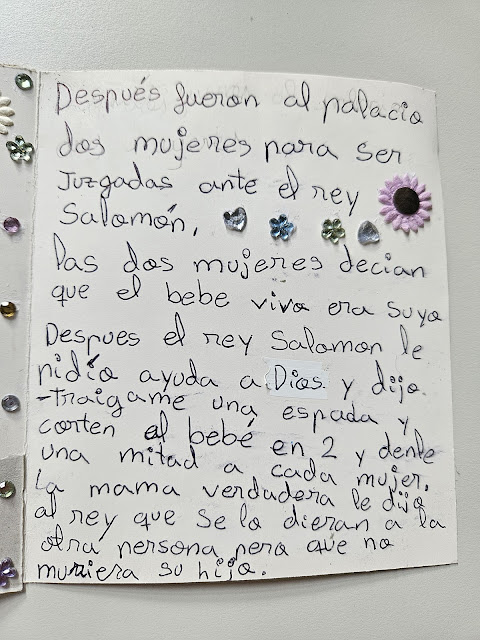 Después fueron al palacio
dos mujeres para ser
Juzgadas ante el rey
Salomón,
las dos mujeres decian
que el bebe vivo era suyo
Despues el rey Salomon le
pidio ayuda a Dios y dijo.
-traigame una espada y
corten al bebé en 2 y denle
una mitad a cada mujer.
La mama verdadera le dijo
al rey que se lo dieran a la
otra persona pero que no
muriera su hijo.